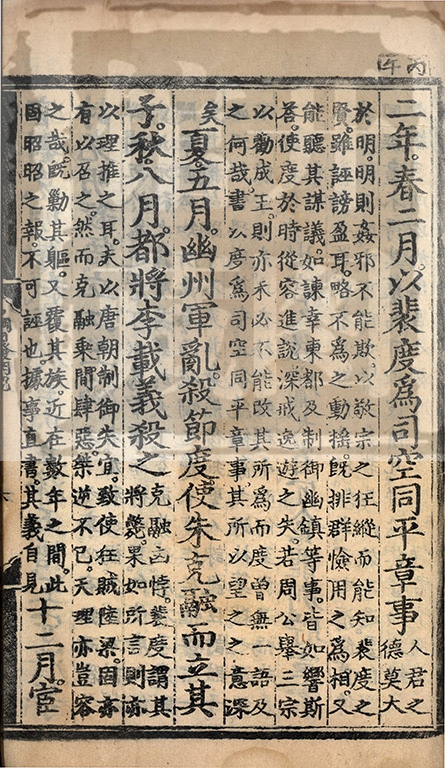 丙午
二年。春二月。以裴度爲司空同平章事
人君之
德莫大
於明。明則姦邪不能欺。以敬宗之狂縱而能知裴度之
賢。雖誣謗盈耳。略不爲之動搖。旣排群憸用之爲相。又
能聽其謀議。如諫幸東都及制御幽鎭等事。皆如響斯
荅。使度於時從容進說。深戒逸遊之失。若周公舉三宗
以勸成王。則亦未必不能改其所爲。而度曾無一語及
之何哉。書以度爲司空同平章事。其所以望之之意深
矣
夏五月。幽州軍亂。殺節度使朱克融而立其
子。秋八月。都將李載義殺之
克融凶悖。裴度謂其
將斃。果如所言。則亦
以理推之耳。夫以唐朝制御失宜。致使狂賊陸梁。固亦
有以召之。然而克融乗間肆惡。桀逆不已。天理亦豈容
之哉。旣勦其軀。又覆其族。近在數年之間。此
固昭昭之報。不可誣也。據事直書。其義自見
十二月。宦